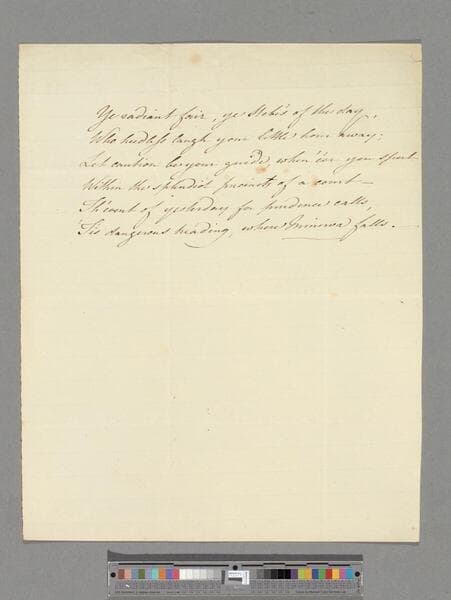 Ye radiant fair, ye Hebe's of the day,
Who heedless laugh your little hour away;
Let caution be your guide, when e'er you sport
Within the splendid precincts of a court—
Th'event of yesterday for prudence calls,
'Tis dangerous treading, where Minerva falls.